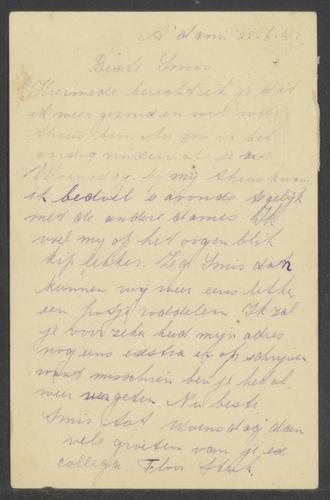 A'dam 22-6-42
Beste Smis
Hiermede bericht ik je dat
ik weer gezond en wel weer
thuis ben. Nu zou ik het
aardig vinden als je a.s.
Woensdag bij mij thuis kwam
ik bedoel 's avonds tegelijk
met de andere dames. Ik
voel my op het oogenblik
kip lekker. Zeg Smis dan
kunnen wij weer eens lekke
een potje roddelen. Ik zal
je voor zeker heid mijn adres
nog eens exstra er op schrijven
want misschien ben je het al
weer vergeten Nu beste
Smis tot woensdag dan
vele groeten van je ex
collega Floor